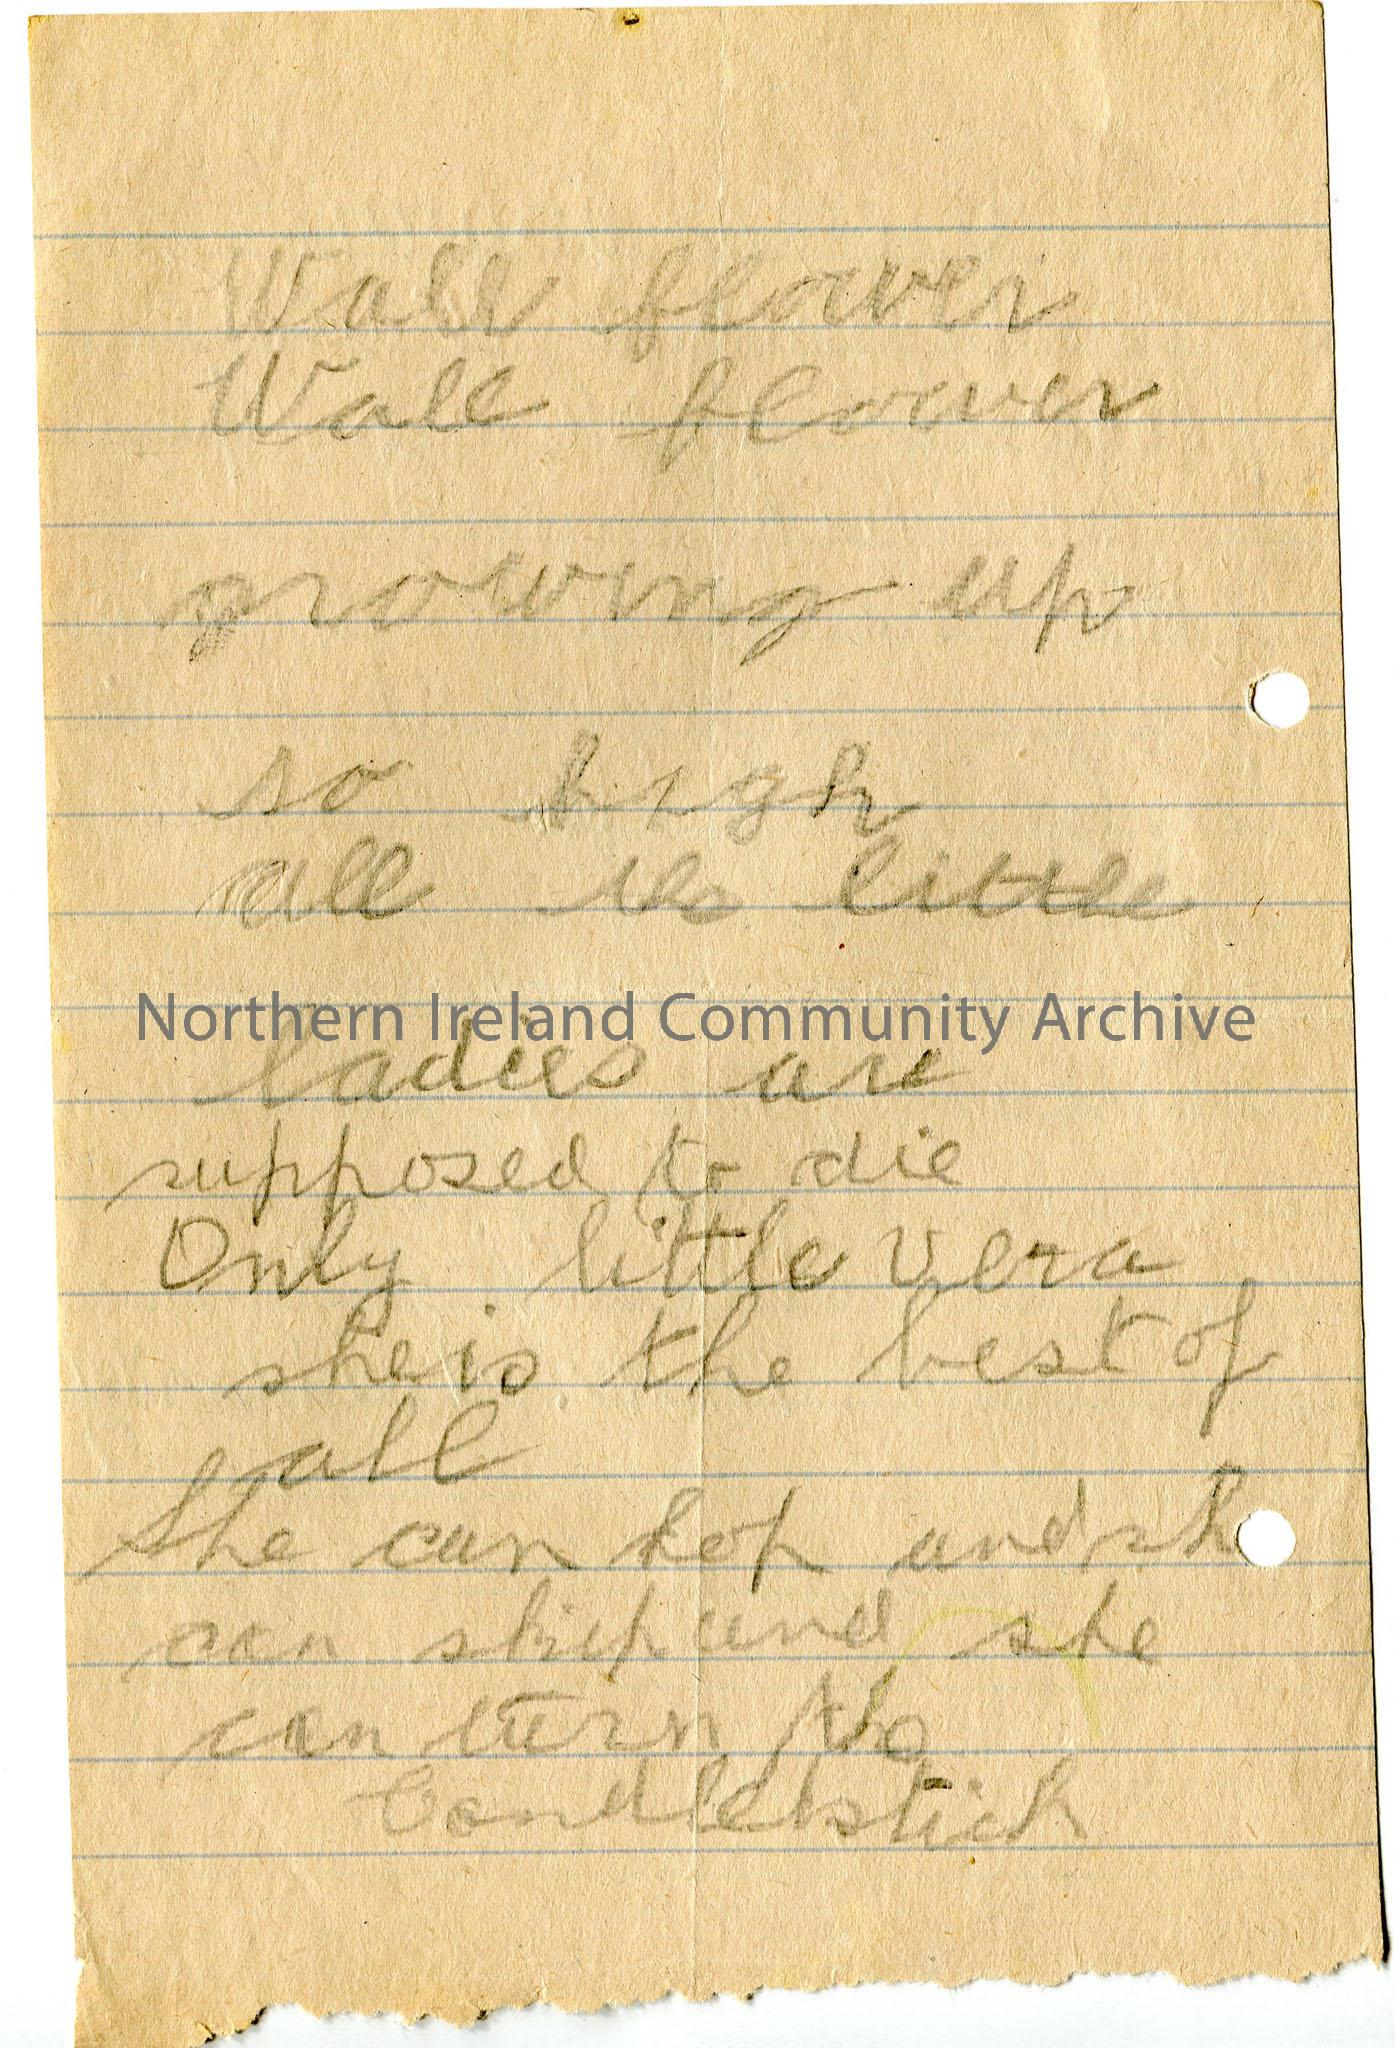 Wall flower
Wall flower
growing up
so high
all the little
Northern Ireland Community Archive
ladies are
supposed to die
Only little vera
she is the best of
all
She can hop and sh
can skip and she
can turn the
Candlestick